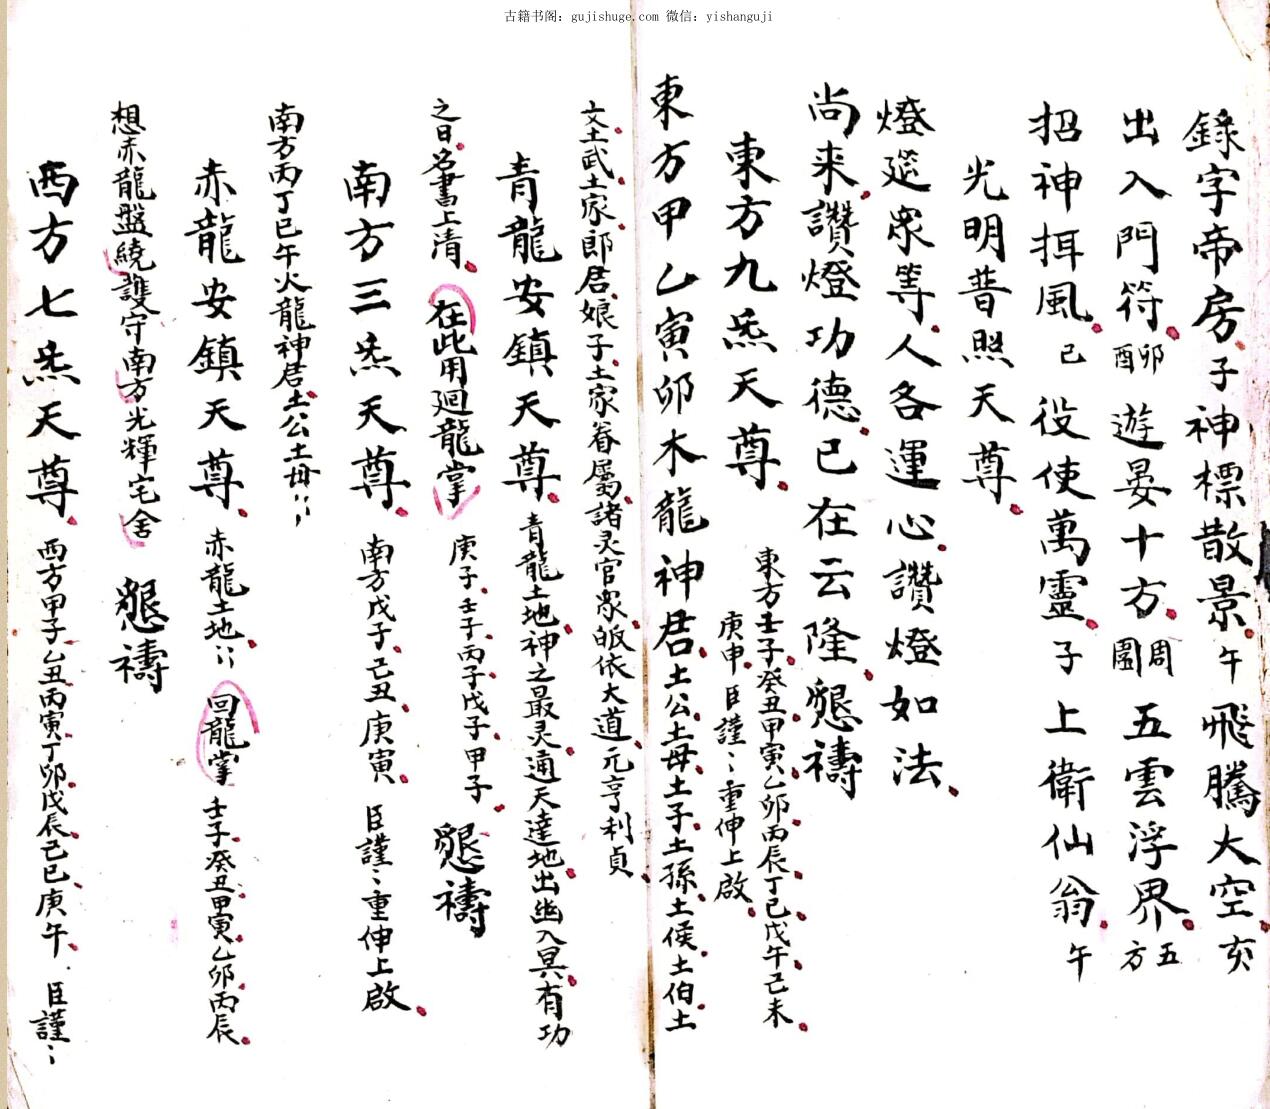 古籍书阁：gujishuge.com 微信：yishanguji
錄字帝房子神標散景午飛騰大空亥
出入門符卯酉遊晏十方周圍五雲浮界五方
招神挕風己役使萬靈子上衛仙翁午
光明普照天尊
燈筵眾等人各運心讚燈如法
尚来讚燈功德已在云隆懇禱
東方九炁天尊東方壬子癸丑甲寅乙卯丙辰丁巳戊午己未
庚申臣謹〻重伸上啟
東方甲乙寅卯木龍神君土公土母土子土孫土侯土伯土
文土武土家郎君娘子土家眷屬諸灵官眾皈依大道元亨利貞
青龍安鎮天尊青龍土地神之最灵通天達地出幽入冥有功
之日名書上清在此用廻龍掌庚子壬子丙子戊子甲子懇禱
南方三炁天尊南方戊子己丑庚寅臣謹〻重伸上啟
南方丙丁巳午火龍神君土公土母〻〻
赤龍安鎮天尊赤龍土地〻〻回龍掌壬子癸丑甲寅乙卯丙辰
想赤龍盤繞護守南方光輝宅舍懇禱
西方七炁天尊西方甲子乙丑丙寅丁卯戊辰己巳庚午臣謹〻